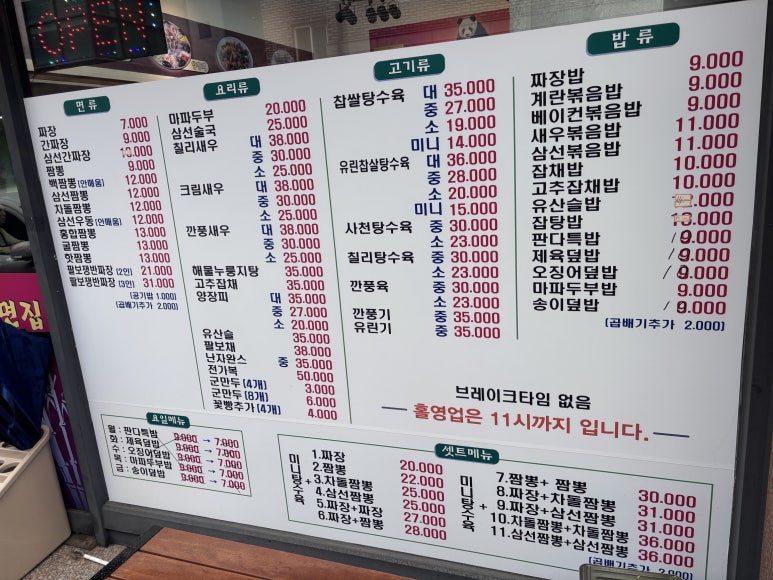 OPEN
면류
짜장 7.000
간짜장 9.000
삼선간짜장
짬뽕 9.000
백짬뽕 (안매움) 12.000
삼선짬뽕 12.000
차돌짬뽕 12.000
삼선우동 (안매움) 12.000
홍합짬뽕 13.000
굴짬뽕 13.000
핫짬뽕 13.000
팔보쟁반짜장 (2인) 21.000
팔보쟁반짜장 (3인) 31.000
(공기밥 1.000)
(곱배기추가 2.000)
요리류
마파두부 20.000
삼선술국 25.000
칠리새우 대 38.000
중 30.000
소 25.000
크림새우 대 38.000
중 30.000
소 25.000
깐풍새우 대 38.000
중 30.000
소 25.000
해물누룽지탕 35.000
고추잡채 35.000
양장피 대 35.000
중 27.000
소 20.000
유산슬 35.000
팔보채 38.000
난자완스 중 35.000
전가복 50.000
군만두 (4개) 3.000
군만두 (8개) 6.000
꽃빵추가 (4개) 4.000
고기류
찹쌀탕수육 대 35.000
중 27.000
소 19.000
미니 14.000
유린찹쌀탕수육 대 36.000
중 28.000
소 20.000
미니 15.000
사천탕수육 중 30.000
소 23.000
칠리탕수육 중 30.000
소 23.000
깐풍육 중 30.000
소 23.000
깐풍기 중 35.000
유린기 중 35.000
밥류
짜장밥 9.000
계란볶음밥 9.000
베이컨볶음밥 9.000
새우볶음밥 11.000
삼선볶음밥 11.000
잡채밥 10.000
고추잡채밥 10.000
유산슬밥
잡탕밥
판다특밥 9.000
제육덮밥 9.000
오징어덮밥 9.000
마파두부밥 9.000
송이덮밥 9.000
(곱배기추가 2.000)
브레이크타임 없음
홀영업은 11시까지 입니다.
면집
요일메뉴
월 : 판다특밥 9.000 → 7.000
화 : 제육덮밥 9.000 → 7.000
수 : 오징어덮밥 9.000 → 7.000
목 : 마파두부밥 9.000 → 7.000
금 : 송이덮밥 9.000 → 7.000
셋트메뉴
미니탕수육 +
1.짜장 20.000
2.짬뽕 22.000
3.차돌짬뽕 25.000
4.삼선짬뽕 25.000
5.짜장+짜장 27.000
6.짜장+짬뽕 28.000
미니탕수육 +
7.짬뽕+ 짬뽕 30.000
8.짜장+차돌짬뽕 31.000
9.짜장+삼선짬뽕 31.000
10.차돌짬뽕+차돌짬뽕 36.000
11.삼선짬뽕+삼선짬뽕 36.000
(곱배기추가 2.000)